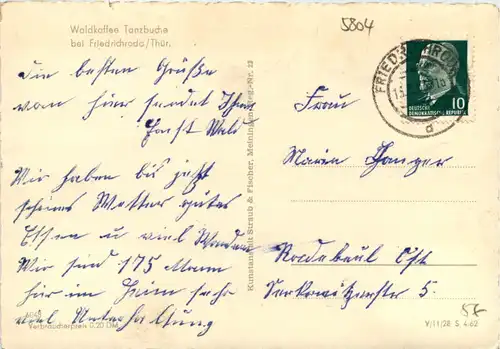 Waldkaffee Tanzbuche
bei Friedrichroda/Thür.
5804
Die besten Grüße
von hier sendet Ihnen
Wald
Wir haben bis jetzt
schönes Wetter gutes
Essen u viel Wandern
Wir sind 175 Mann
hier im Heim sehr
viel Unterhaltung
Verbraucherpreis 0,20 DM
Kunstanstalt Straub & Fischer, Meiningen
Frau
Maria
Radebeul Ost
5.
DEUTSCHE
DEMOKRATISCHE REPUBLIK
10
d
V/11/28 S 4.62